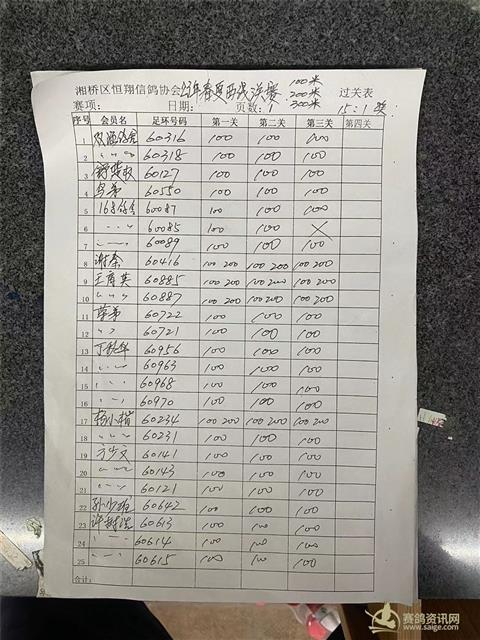 湘桥区恒翔信鸽协会22年春夏西线决赛 100米 200米 300米 过关表
赛项: 日期: 页数:1 15:1奖
序号 会员名 足环号码 第一关 第二关 第三关 第四关
1 60316 100 100 100
2 〃 60318 100 100 100
3 60127 100 100 100
4 60550 100 100 100
5 168鸽舍 60087 100 100 100
6 〃 60085 100 100 ×
7 〃 60089 100 100 100
8 谢余 60416 100 200 100 200 100 200
9 王育英 60885 100 200 100 200 100 200
10 〃 60887 100 200 100 200 100 200
11 60722 100 100 100
12 〃 60721 100 100 100
13 60956 100 100 100
14 〃 60963 100 100 100
15 〃 60968 100 100 100
16 〃 60970 100 100 100
17 杨小楷 60234 100 200 100 200 100 200
18 〃 60231 100 100 100
19 方少文 60141 100 100 100
20 〃 60143 100 100 100
21 〃 60121 100 100 100
22 60642 100 100 100
23 60613 100 100 100
24 〃 60614 100 100 100
25 〃 60615 100 100 100
合计:
赛鸽资讯网
www.saige.com